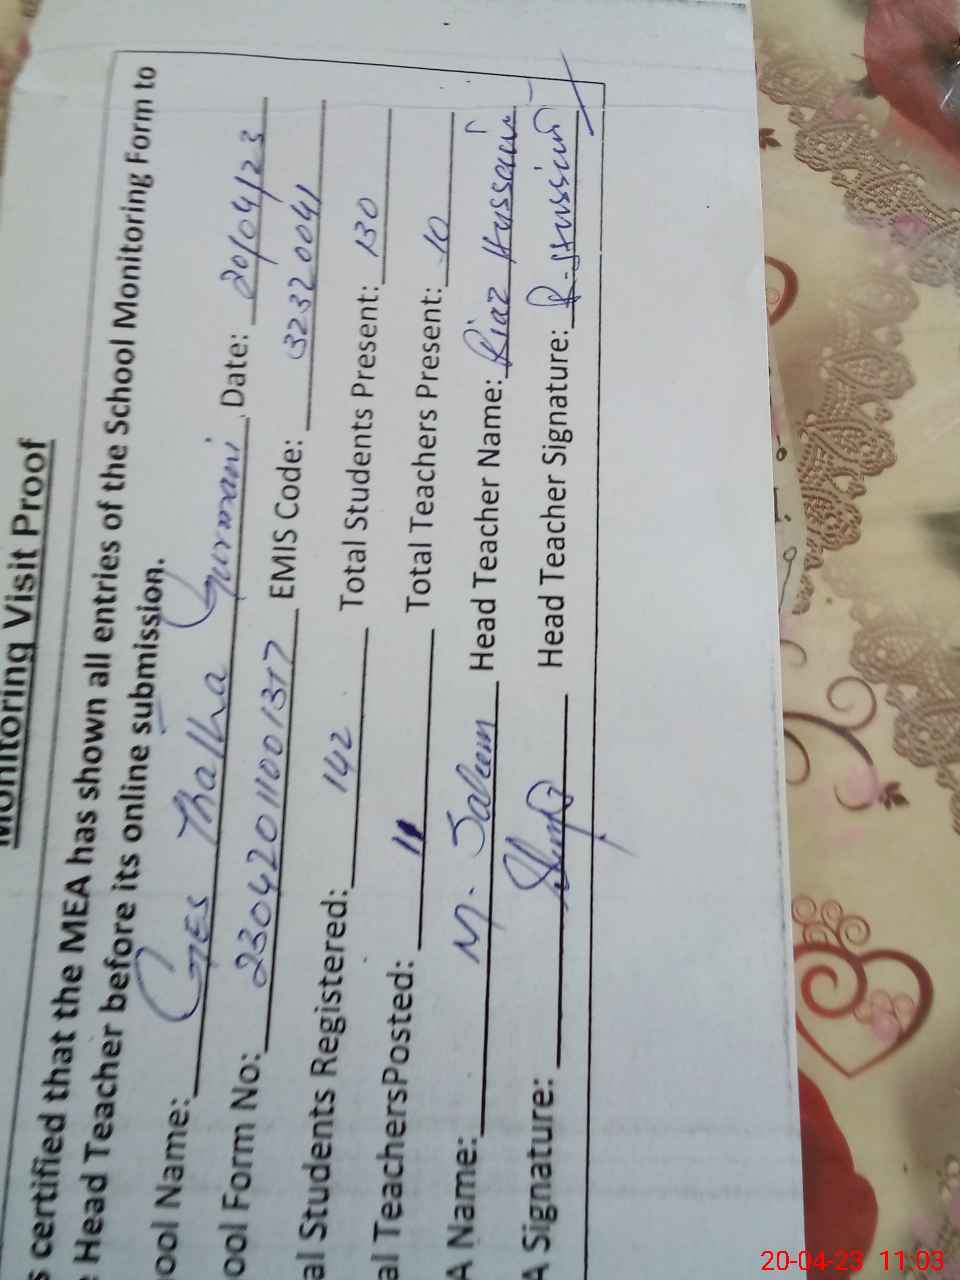 Monitoring Visit Proof
s certified that the MEA has shown all entries of the School Monitoring Form to
e Head Teacher before its online submission.
ool Name: GES Thalha Gurmani Date: 20/04/23
ool Form No: 23042011001317 EMIS Code: 32320041
al Students Registered: 142 Total Students Present: 130
al TeachersPosted: 11 Total Teachers Present: 10
A Name: M. Saleem Head Teacher Name: Riaz Hussain
A Signature: Head Teacher Signature: R. Hussain
20-04-23 11:03